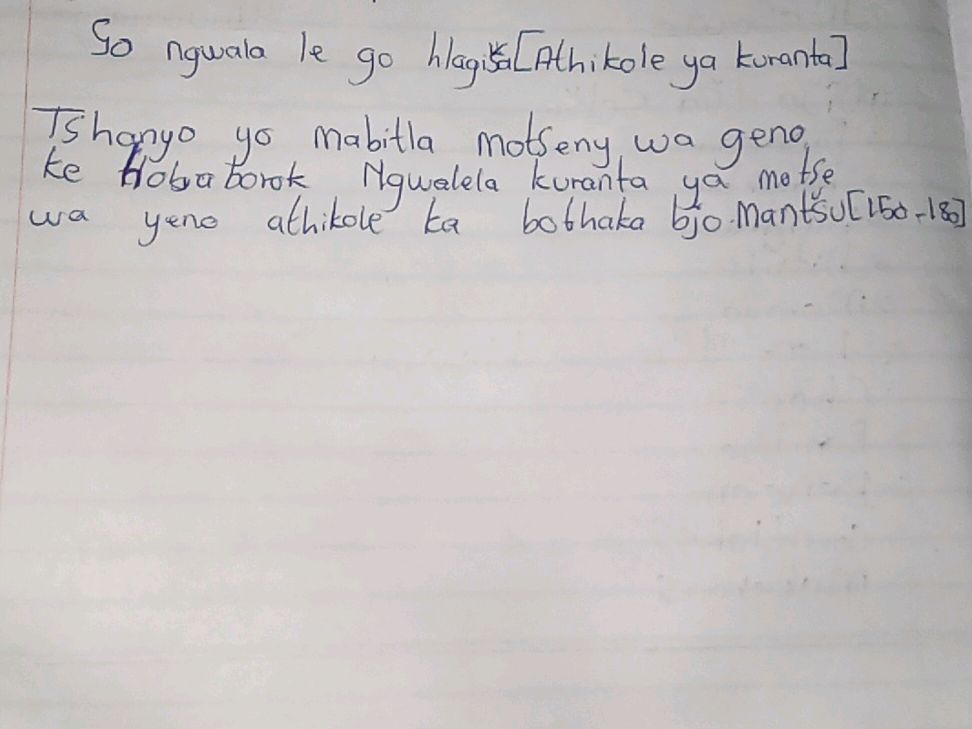 Go ngwala le go hlagiša [Athikole ya kuranta]
Tshenyo yo mabitla motseny wa geno,
ke Ngwalela kuranta ya motse
wa yeno athikole ka bothaka bjo Mantšu [150-180]